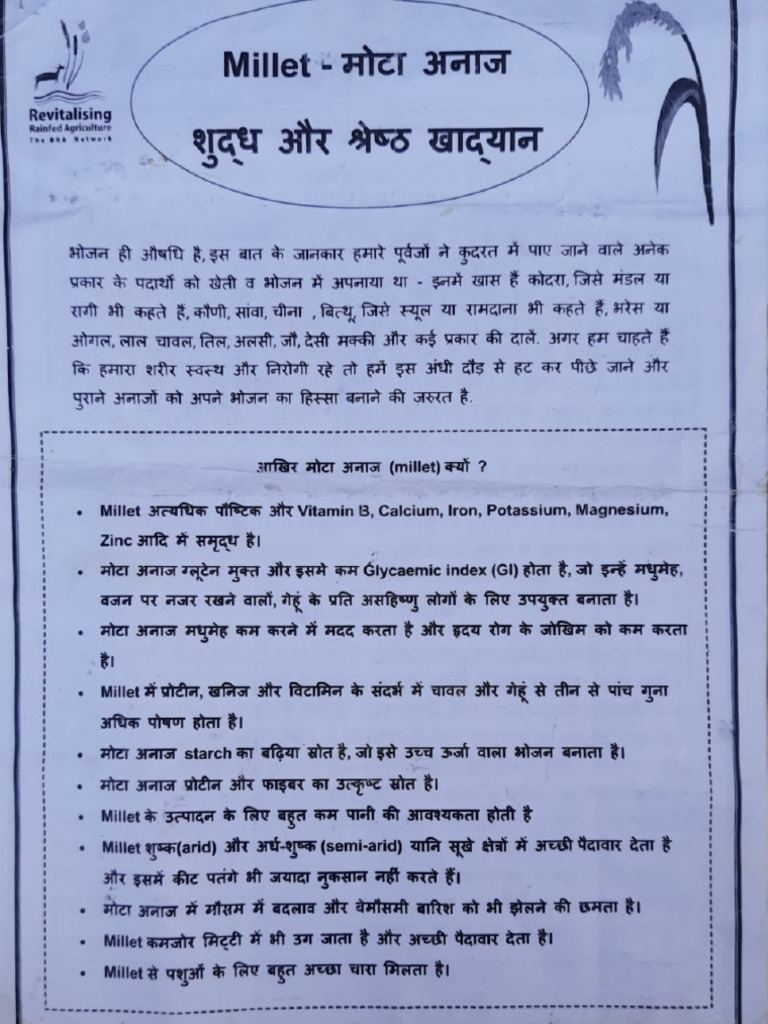 Millet - मोटा अनाज
शुद्ध और श्रेष्ठ खाद्यान
Revitalising
Rainfed Agriculture
The RRA Network
भोजन ही औषधि है, इस बात के जानकार हमारे पूर्वजों ने कुदरत में पाए जाने वाले अनेक
प्रकार के पदार्थो को खेती व भोजन में अपनाया था - इनमें खास हैं कोदरा, जिसे मंडल या
रागी भी कहते हैं, कौणी, सांवा, चीना , बित्थू, जिसे स्यूल या रामदाना भी कहते हैं, भरेस या
ओगल, लाल चावल, तिल, अलसी, जौ, देसी मक्की और कई प्रकार की दालें. अगर हम चाहते हैं
कि हमारा शरीर स्वस्थ और निरोगी रहे तो हमें इस अंधी दौड़ से हट कर पीछे जाने और
पुराने अनाजों को अपने भोजन का हिस्सा बनाने की ज़रुरत है.
आखिर मोटा अनाज (millet) क्यों ?
• Millet अत्यधिक पौष्टिक और Vitamin B, Calcium, Iron, Potassium, Magnesium,
Zinc आदि में समृद्ध है।
• मोटा अनाज ग्लूटेन मुक्त और इसमे कम Glycaemic index (GI) होता है, जो इन्हें मधुमेह,
वजन पर नजर रखने वालों, गेहूं के प्रति असहिष्णु लोगों के लिए उपयुक्त बनाता है।
• मोटा अनाज मधुमेह कम करने में मदद करता है और हृदय रोग के जोखिम को कम करता
है।
• Millet में प्रोटीन, खनिज और विटामिन के संदर्भ में चावल और गेहूं से तीन से पांच गुना
अधिक पोषण होता है।
• मोटा अनाज starch का बढ़िया स्रोत है, जो इसे उच्च ऊर्जा वाला भोजन बनाता है।
• मोटा अनाज प्रोटीन और फाइबर का उत्कृष्ट स्रोत है।
• Millet के उत्पादन के लिए बहुत कम पानी की आवश्यकता होती है
• Millet शुष्क(arid) और अर्ध-शुष्क (semi-arid) यानि सूखे क्षेत्रों में अच्छी पैदावार देता है
और इसमें कीट पतंगे भी जयादा नुकसान नहीं करते हैं।
• मोटा अनाज में मौसम में बदलाव और वेमौसमी बारिश को भी झेलने की छमता है।
• Millet कमजोर मिट्टी में भी उग जाता है और अच्छी पैदावार देता है।
• Millet से पशुओं के लिए बहुत अच्छा चारा मिलता है।